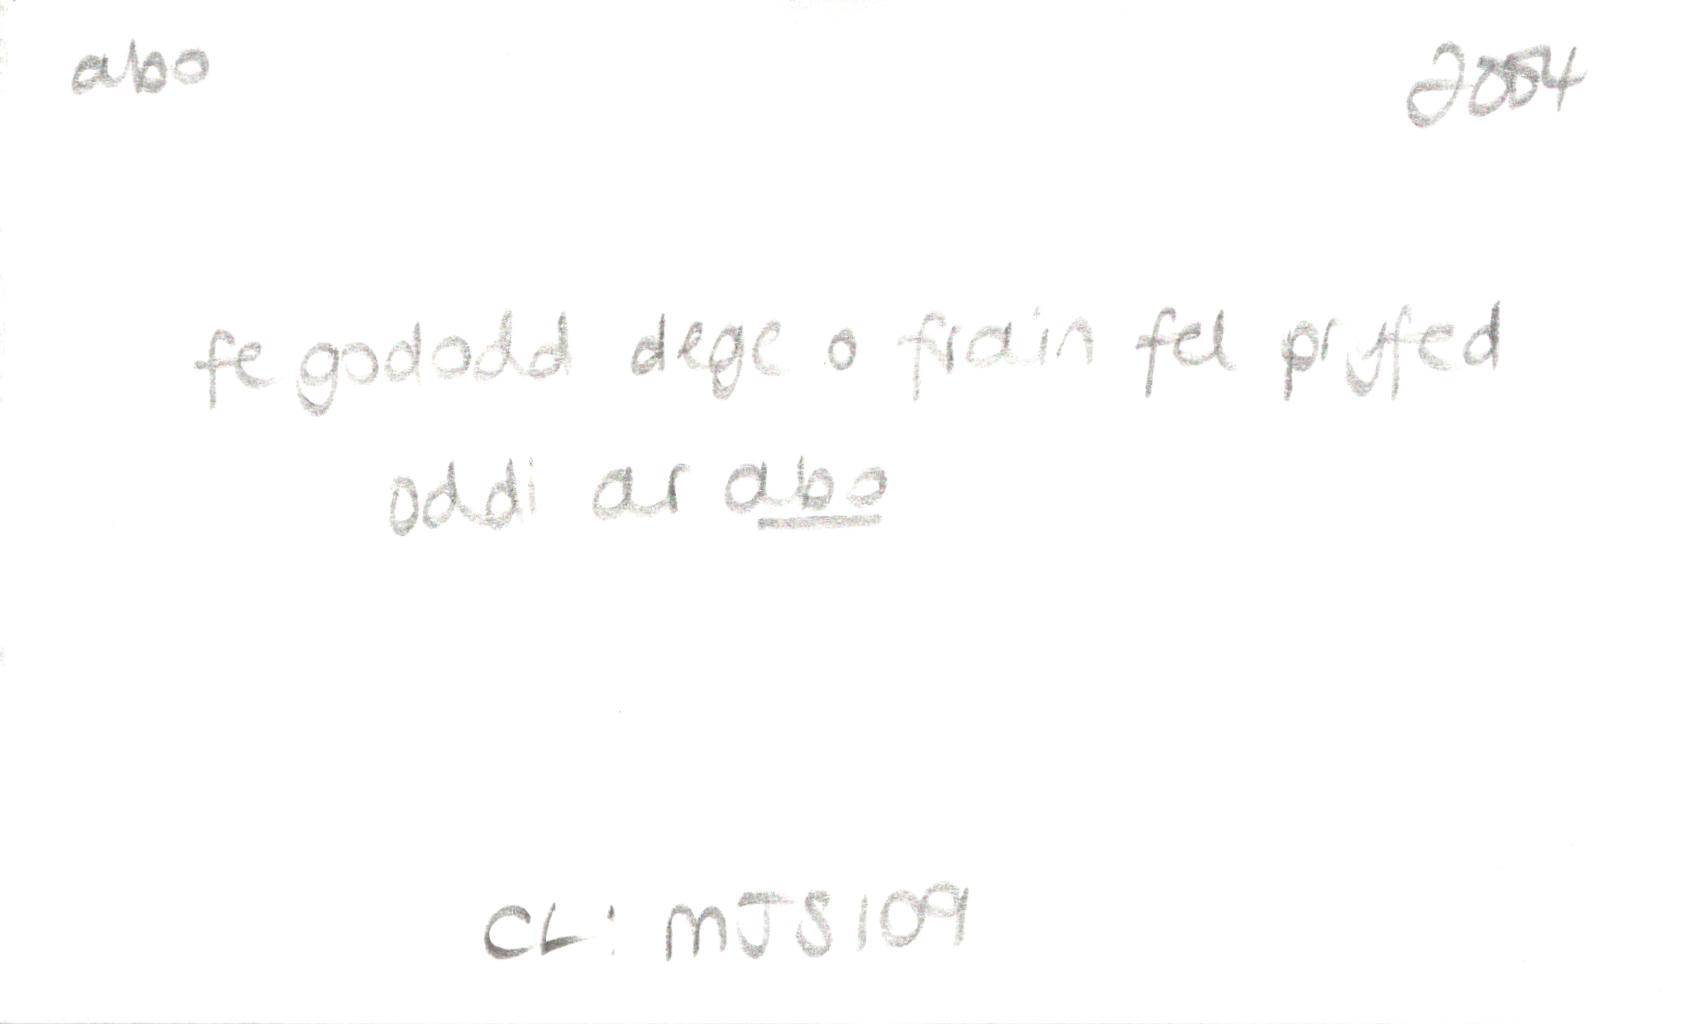 abo 2004
fe gododd dege o frain fel pryfed
oddi ar abo
CL: MJS 109